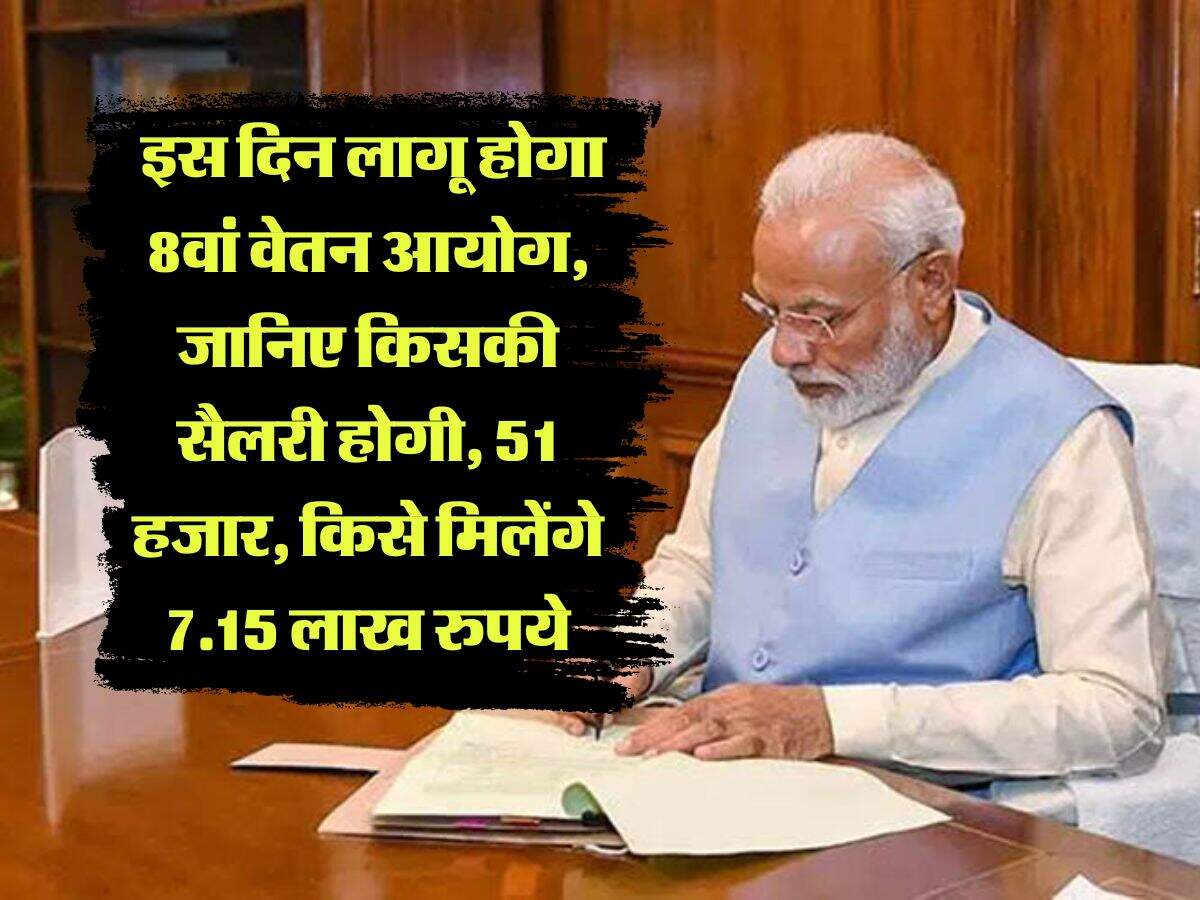 इस दिन लागू होगा
8वां वेतन आयोग,
जानिए किसकी
सैलरी होगी, 51
हजार, किसे मिलेंगे
7.15 लाख रुपये